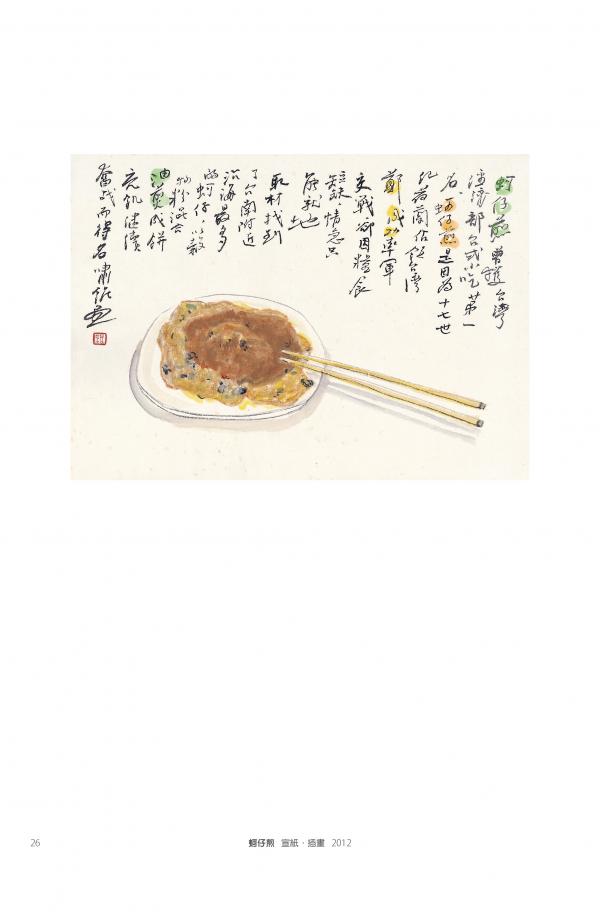 蚵仔煎 曾獲台灣
經濟部台式小吃第一
名.蚵仔煎是因為十七世
紀荷蘭佔領台灣
鄭成功率軍
交戰卻因糧食
短缺,情急只
能就地
取材找到
了台南附近
沿海最多
的蚵仔,以穀
物粉混合
油煎成餅
充飢继續
奮戰而得名
26
蚵仔煎 宣紙・插畫 2012